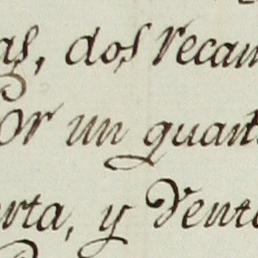 as, dos recam
or un quart
erta, y Venta